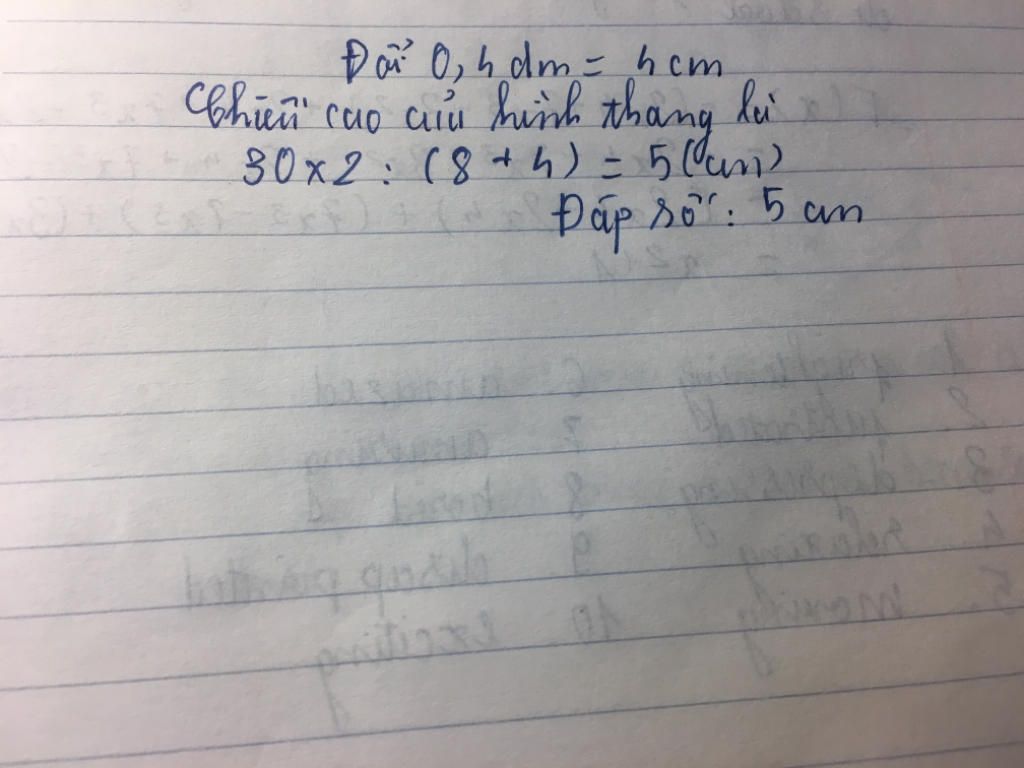 Đổi 0,4 dm = 4 cm
Chiều cao của hình thang là
30 x 2 : (8 + 4) = 5 (cm)
Đáp số: 5 cm